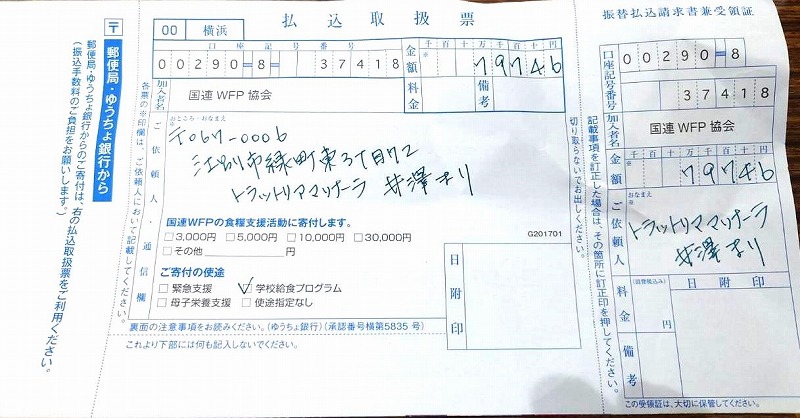 郵便局・ゆうちょ銀行から
郵便局・ゆうちょ銀行からのご寄付は、右の払込取扱票をご利用ください。
(振込手数料のご負担をお願いします。)
払込取扱票
00 横浜
口座記号番号
00290=8= 37418
金額
千 百 十 万 千 百 十 円
79746
料金
備考
加入者名
国連WFP協会
各票の※印欄は、ご依頼人において記載してください。
ご依頼人・通信欄
おところ・おなまえ
※
〒067-0006
江別市緑町東3丁目72
トラットリアマリナーラ 井澤まり
国連WFPの食糧支援活動に寄付します。
G201701
□3,000円 □5,000円 □10,000円 □30,000円
□その他 円
ご寄付の使途
□緊急支援 ☑学校給食プログラム
□母子栄養支援 □使途指定なし
日附印
裏面の注意事項をお読みください。(ゆうちょ銀行)(承認番号横第5835号)
これより下部には何も記入しないでください。
切り取らないでお出しください。
記載事項を訂正した場合は、その箇所に訂正印を押してください。
振替払込請求書兼受領証
口座記号番号
00290=8
37418
加入者名
国連WFP協会
金額
千 百 十 万 千 百 十 円
79746
ご依頼人
おなまえ
※
トラットリアマリナーラ
井澤まり
料金
(消費税込み)
円
日附印
備考
この受領証は、大切に保管してください。